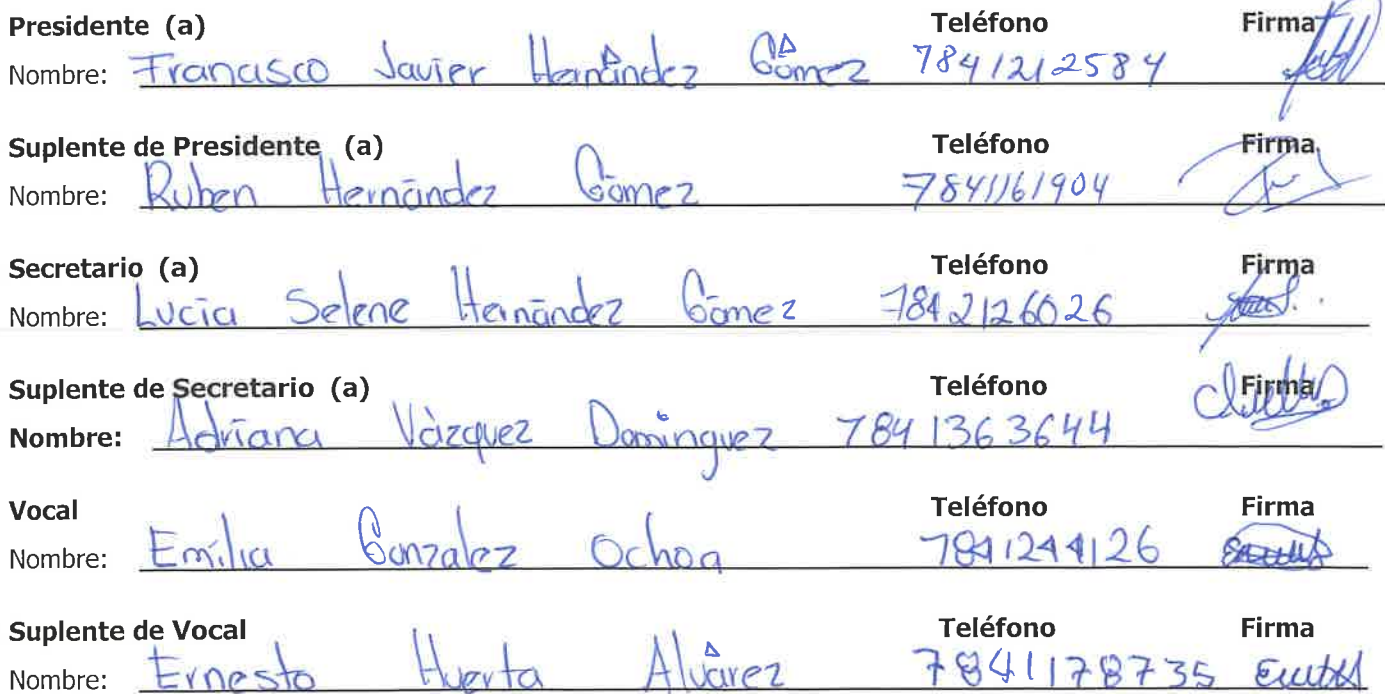 Presidente (a) Teléfono Firma
Nombre: Francisco Javier Hernández Gómez 7841212584
Suplente de Presidente (a) Teléfono Firma
Nombre: Ruben Hernández Gómez 7841161904
Secretario (a) Teléfono Firma
Nombre: Lucía Selene Hernández Gómez 7842126026
Suplente de Secretario (a) Teléfono Firma
Nombre: Adriana Vázquez Dominguez 7841363644
Vocal Teléfono Firma
Nombre: Emilia Gonzalez Ochoa 7841244126
Suplente de Vocal Teléfono Firma
Nombre: Ernesto Huerta Alvárez 7841178735